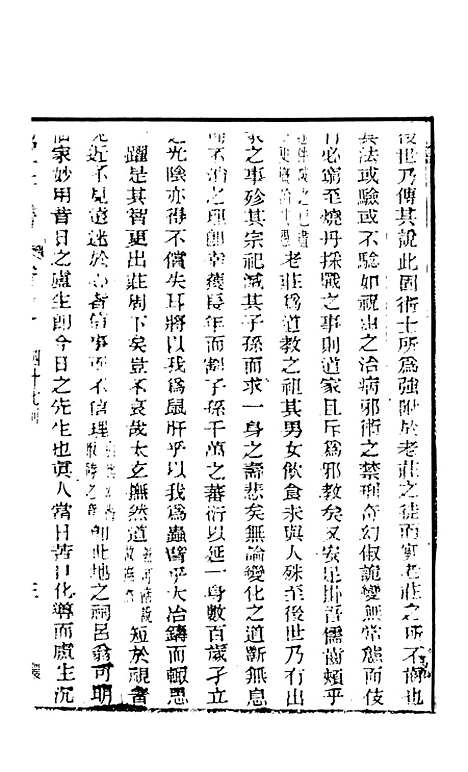 後世乃傳其說此固術士所爲強附於老莊之徒而實老莊之所不肯也
其法或驗或不驗如祝由之治病邪術之禁刑奇幻俶詭變無常態而伎
有必窮至燒丹採戰之事則道家且斥爲邪教矣又安足掛吾儒齒頰乎
老莊爲道教之祖其男女飲食未與人殊至後世乃有出
家之事殄其宗祀滅其子孫而求一身之壽悲矣無論變化之道斷無息
而不消之理即幸獲長年而割子孫千萬之蕃衍以延一身數百歲孑立
之光陰亦得不償失耳將以我爲鼠肝乎以我爲蟲臂乎大冶鑄而輒思
躍是其智更出莊周下矣豈不哀哉太玄撫然道短於視者
見近不見遠迷於心者信事不信理即此地之祠呂翁可明
仙家妙用昔日之盧生即今日之先生也眞人當日苦口化導而盧生沉